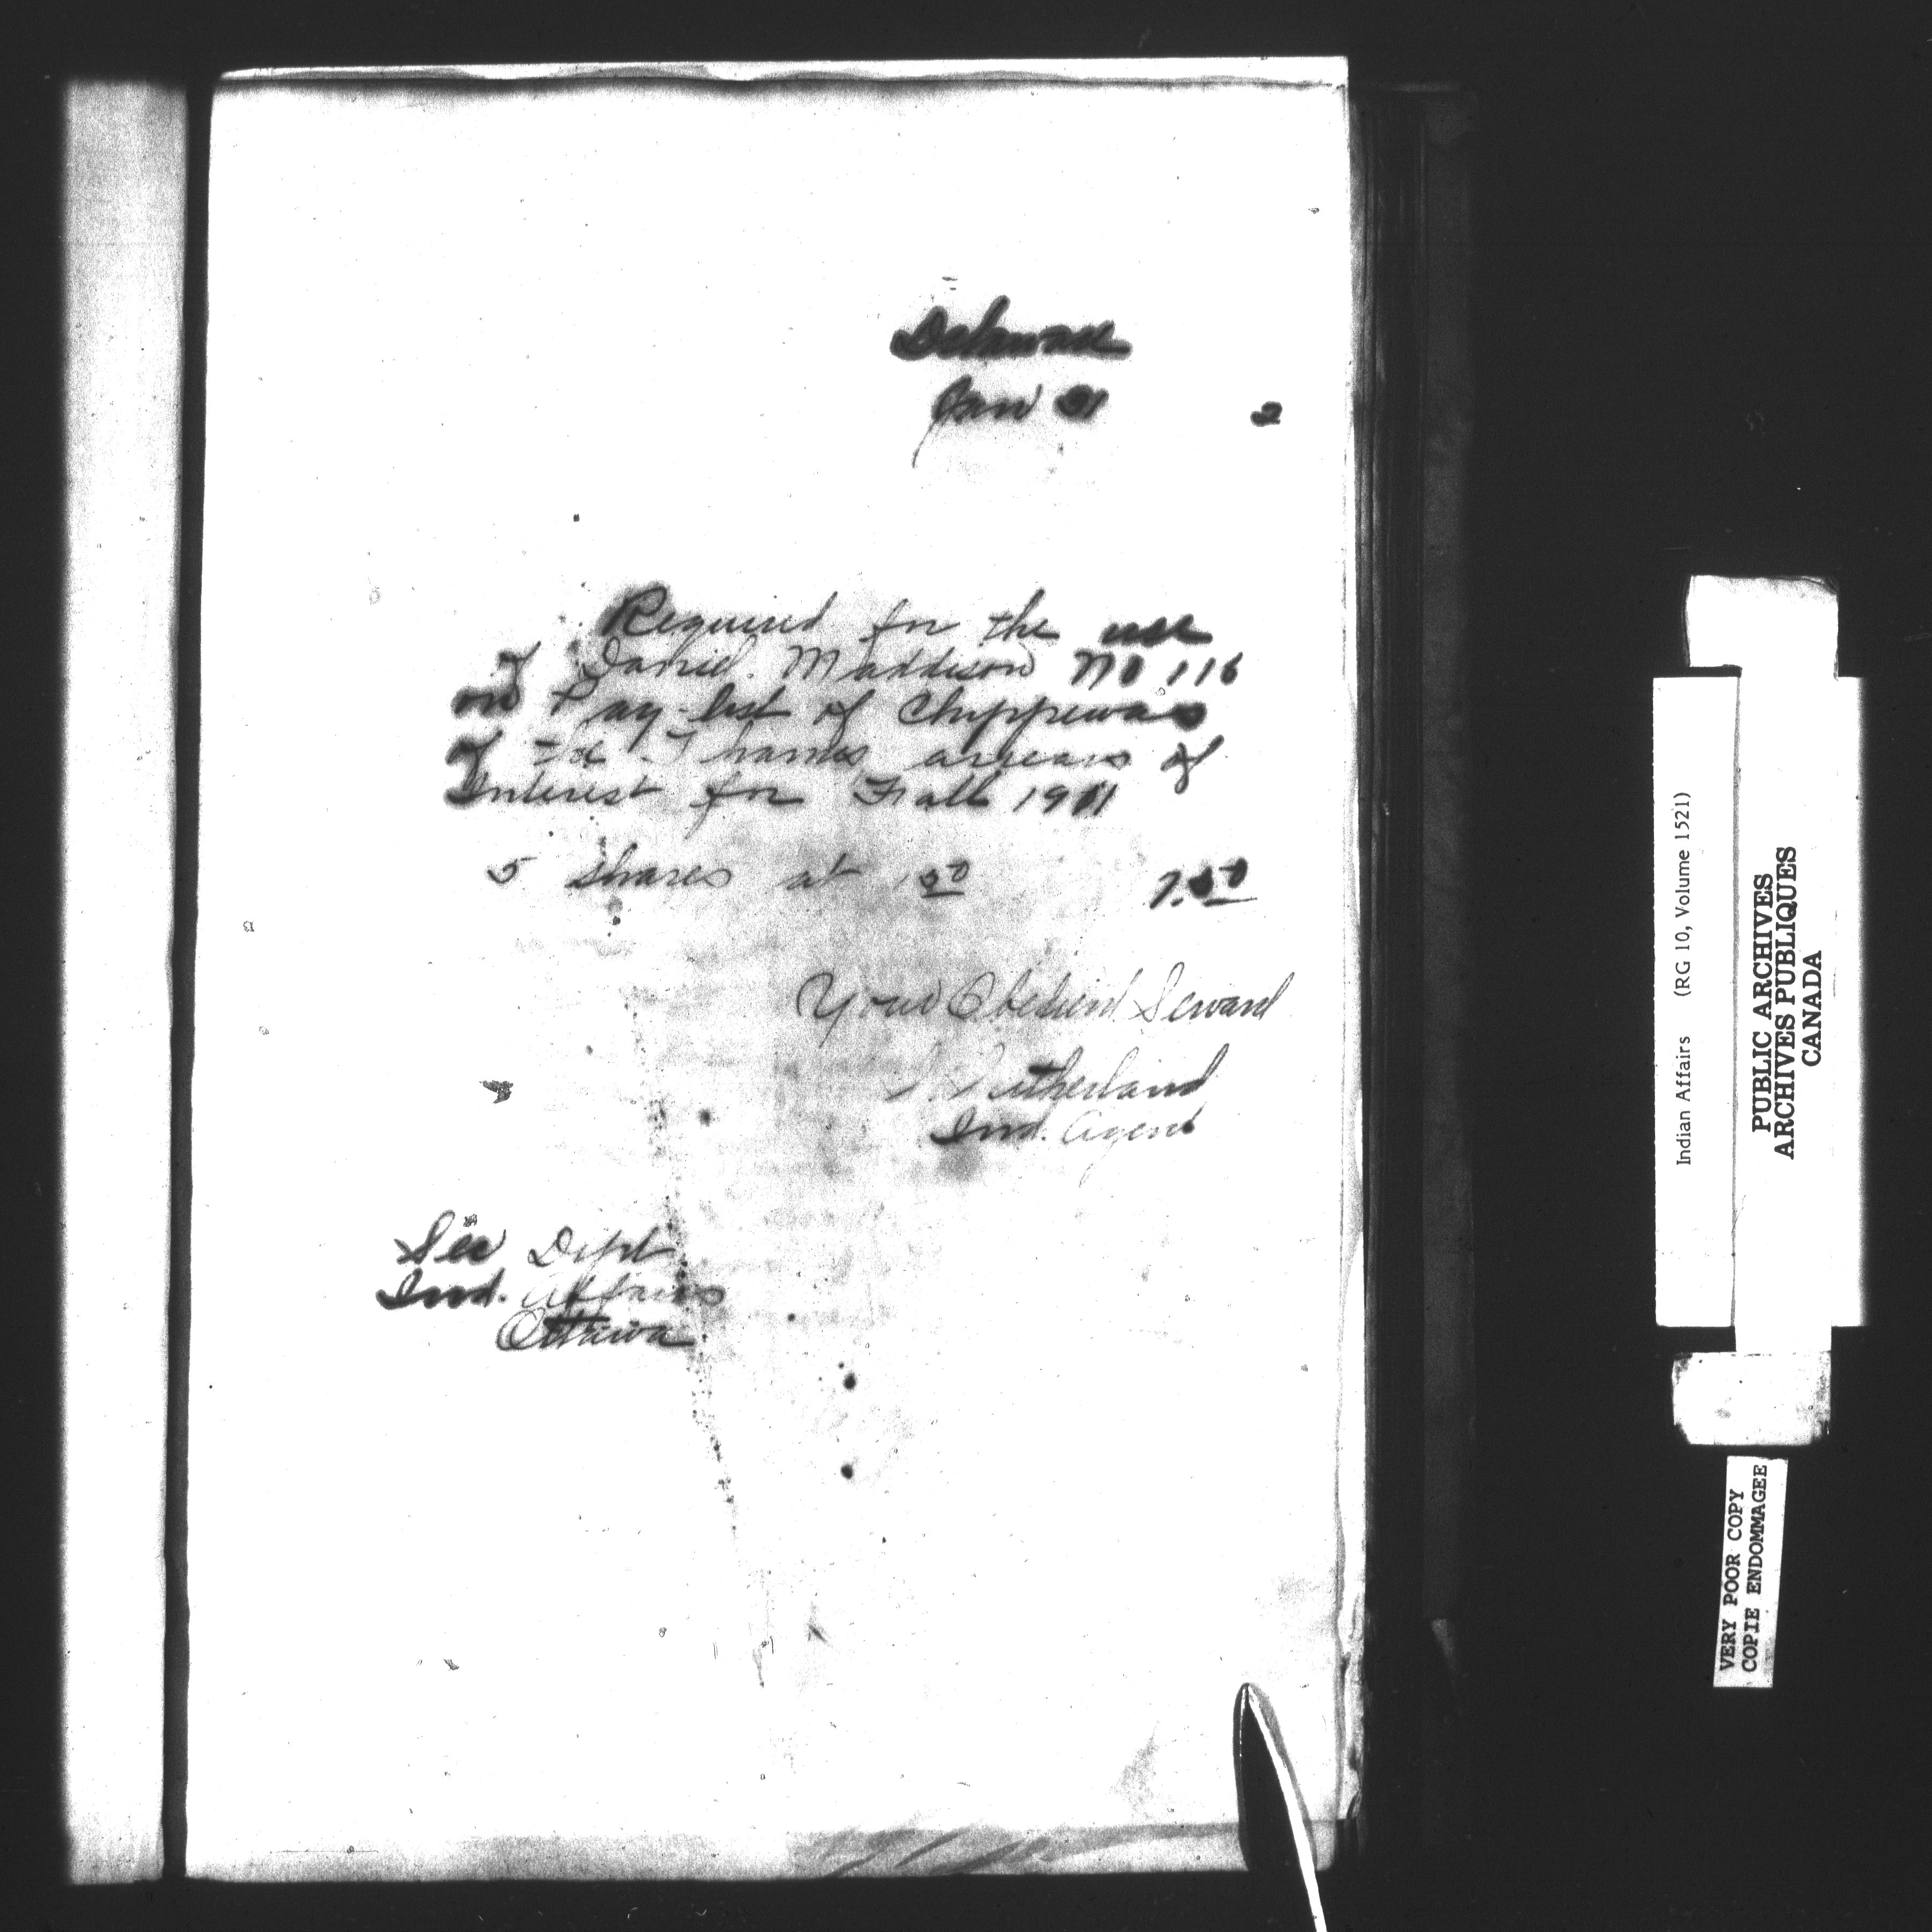 Delaware
Jan 31 2
Required for the use
of Daniel. Maddison No 116
on Pay-list of Chippewas
of the Thames arrears of
Interest for Fall 1911
5 shares at 1 50 7.50
Your Obedient Servant
S. Sutherland
Ind. Agent
Sec Dept
Ind. Affairs
Ottawa
Indian Affairs (RG 10, Volume 1521)
PUBLIC ARCHIVES
ARCHIVES PUBLIQUES
CANADA
VERY POOR COPY
COPIE ENDOMMAGEE